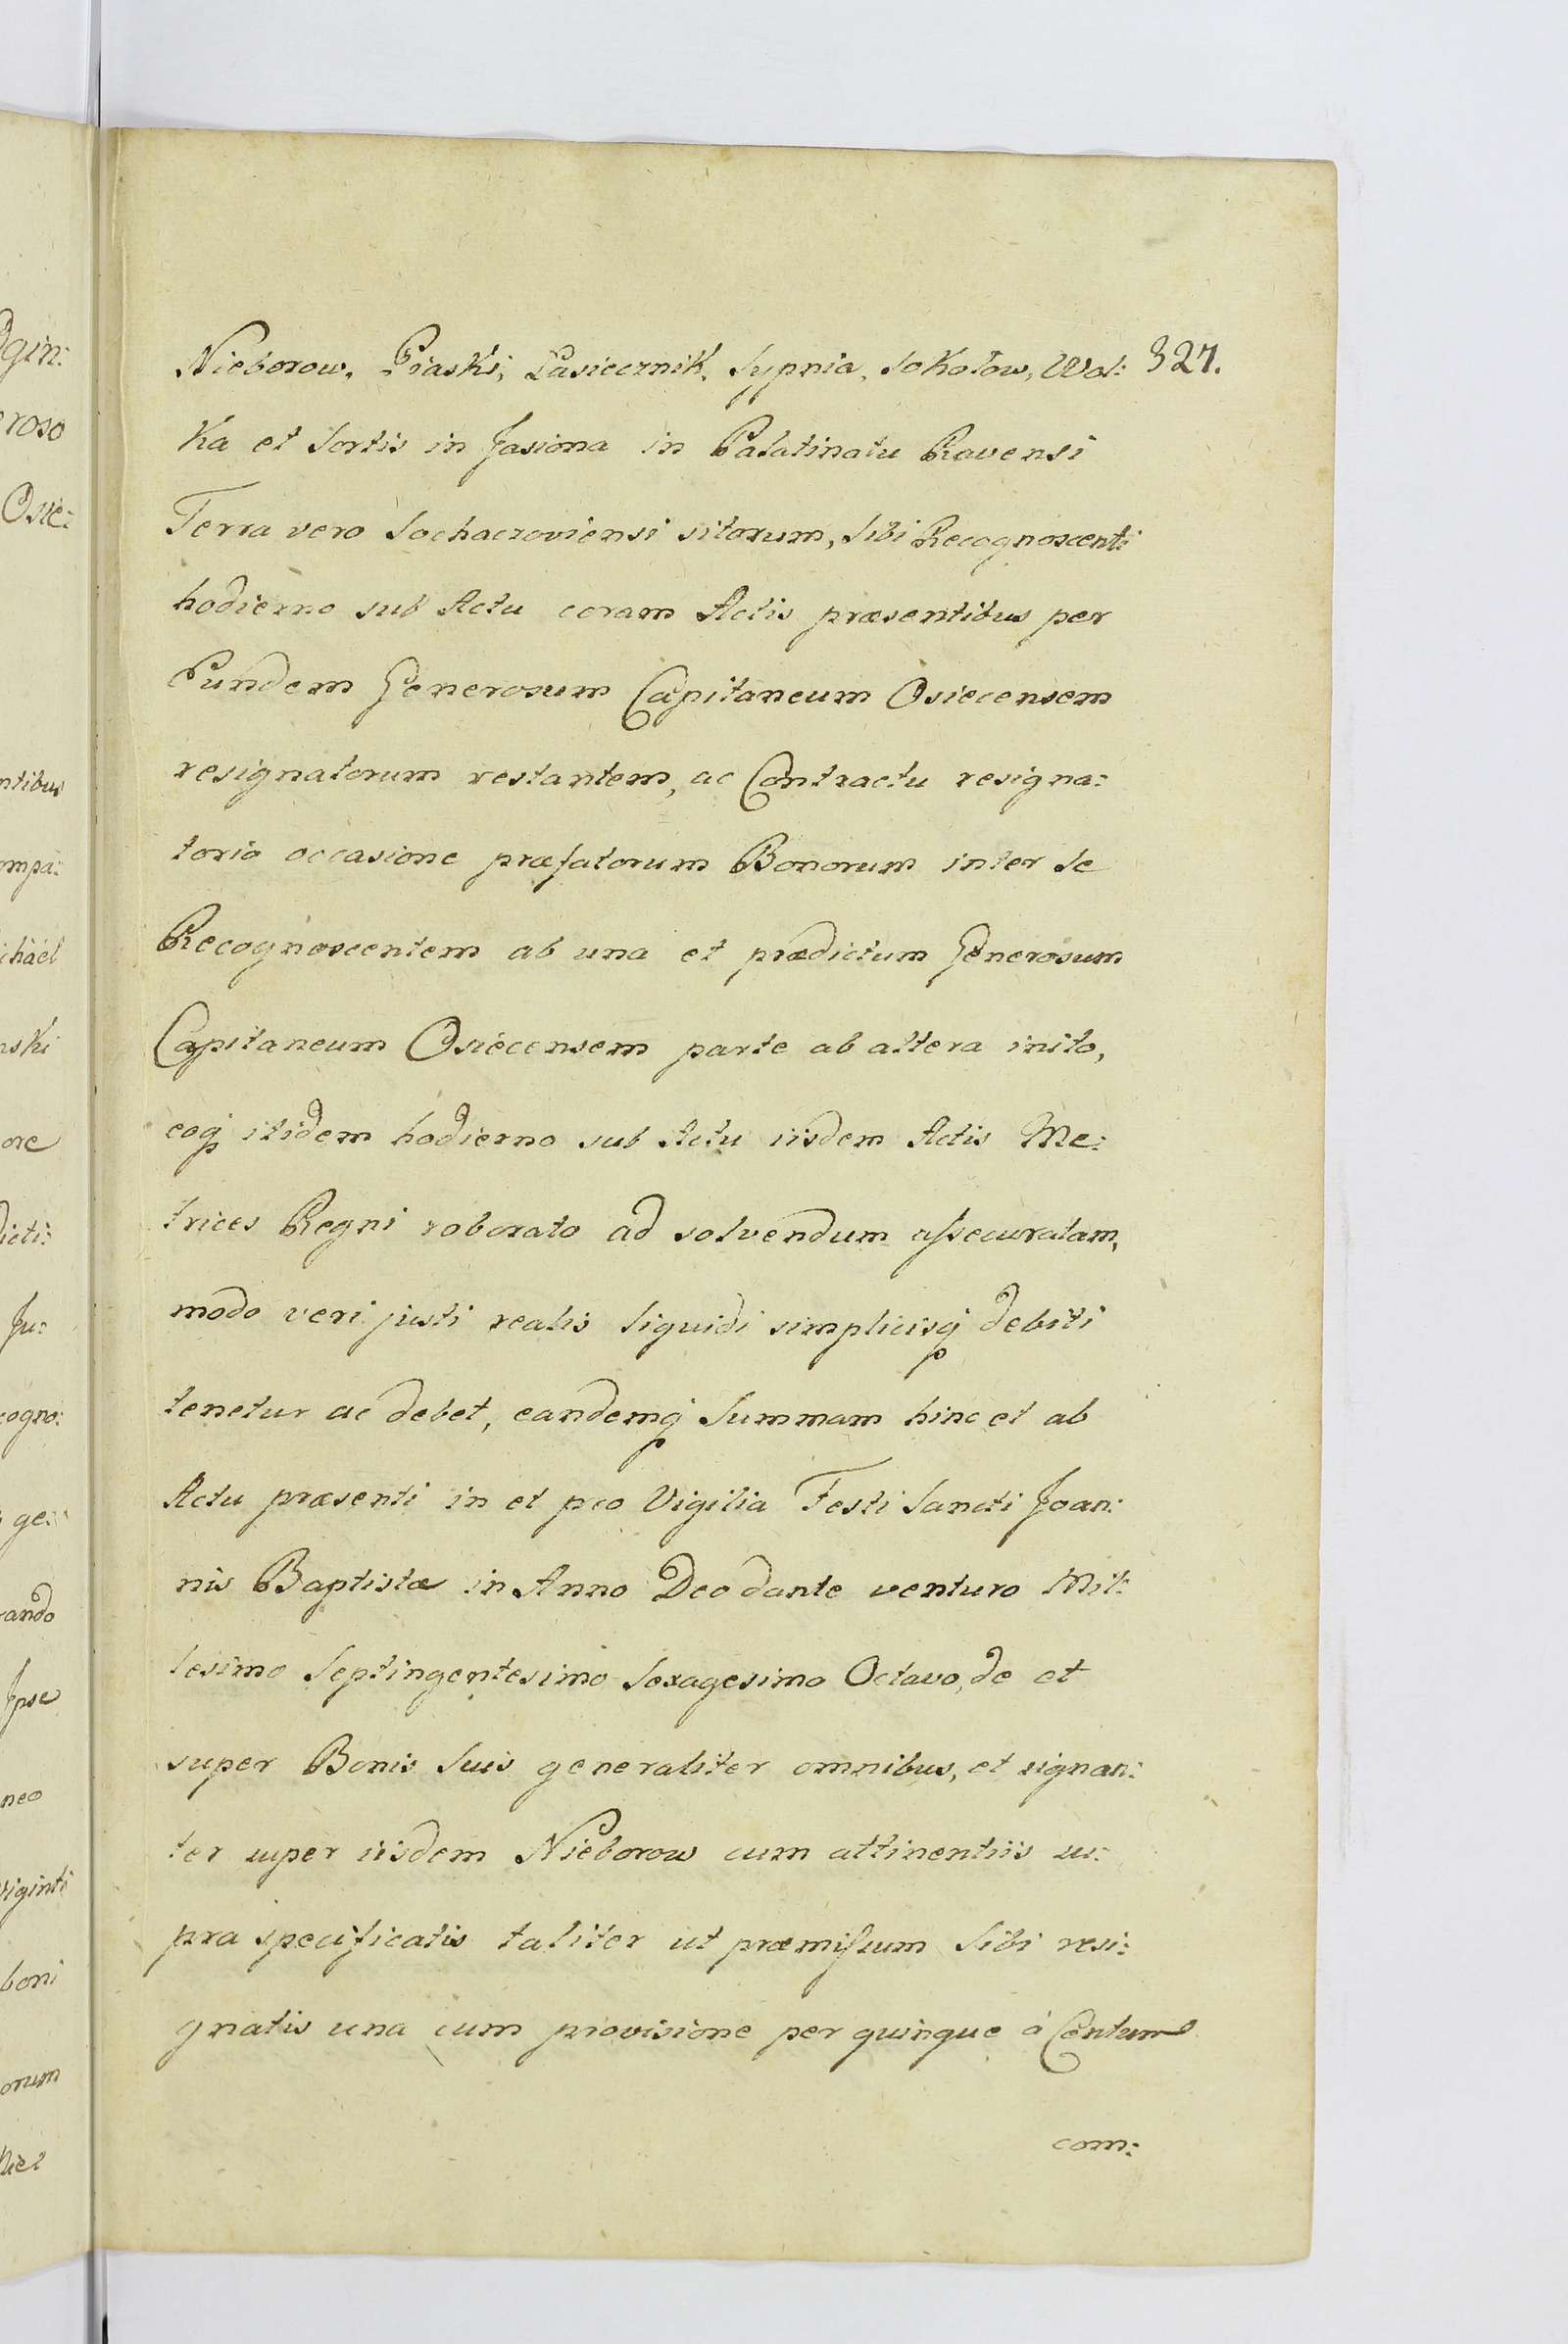 Nieborow, Piaski, Pasiecznik, Sypnia, Sokołow, Wol: 327.
Ka et Sortis in Jasiona in Palatinatu Ravensi
Terra vero Sochaczoviensi sitorum, Sibi Recognoscenti
hodierno sub Actu coram Actis præsentibus per
Eundem Generosum Capitaneum Osiecensem
resignatorum restantem, ac Contractu resigna:
torio occasione præfatorum Bonorum inter Se
Recognoscentem ab una et prædictum Generosum
Capitaneum Osiecensem parte ab altera inito,
eoq́ itidem hodierno sub Actu iisdem Actis Me:
trices Regni roborato ad solvendum assecuratam,
modo veri justi realis liquidi simplicisq́ debiti
tenetur ac debet, eandemq́ Summam hinc et ab
Actu præsenti in et pro Vigilia Festi Sancti Joan:
nis Baptistæ in Anno Deo dante venturo Mil:
lesimo Septingentesimo Sexagesimo Octavo, de et
super Bonis Suis generaliter omnibus, et signan:
ter super iisdem Nieborow cum attinentiis su:
pra specificatis taliter ut præmissum Sibi resi:
gnatis una cum provisione per quinque à Centum
com:
dgin:
eroso
Osie:
ntibus
ompa:
ichaël
nski
ore
dicti:
Ju:
cogno:
ge:
rando
Ipse
neo
viginti
boni
orum